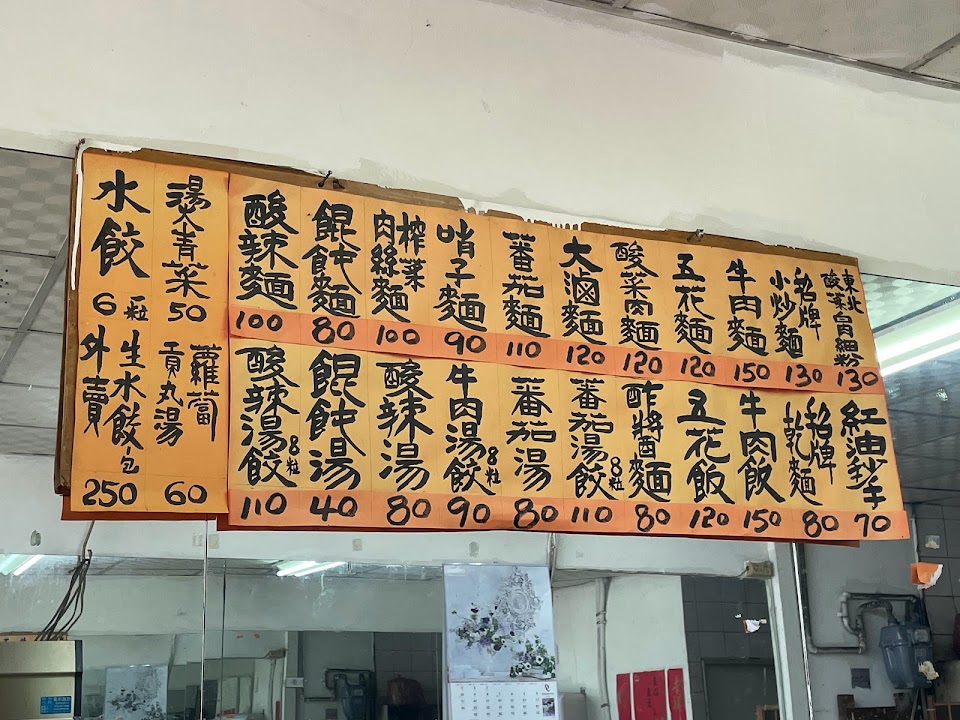 東北
酸菜冒細粉
130
招牌
小炒麵
130
牛肉麵
150
五花麵
120
酸菜肉麵
120
大滷麵
120
蕃茄麵
110
哨子麵
90
榨菜
肉絲麵
100
餛飩麵
80
酸辣麵
100
燙青菜
50
水餃
6粒
紅油抄手
70
招牌
乾麵
80
牛肉飯
150
五花飯
120
酢醬麵
80
蕃茄湯餃8粒
110
蕃茄湯
80
牛肉湯餃8粒
90
酸辣湯
80
餛飩湯
40
酸辣湯餃8粒
110
蘿蔔
貢丸湯
60
生水餃一包
外賣
250